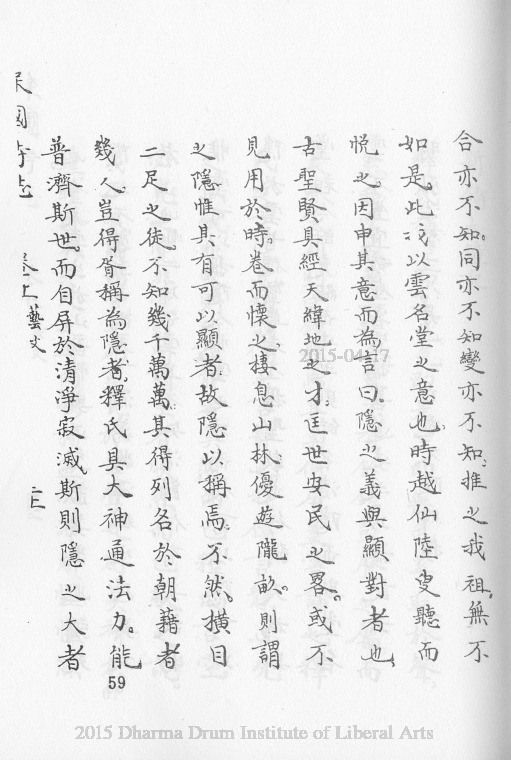 合亦不知。同亦不知變亦不知。推之我祖。無不
如是。此我以雲名堂之意也。時越仙陸叟聽而
悅之。因申其意而為言曰。隱之義與顯對者也。
古聖賢具經天緯地之才。匡世安民之畧。或不
見用於時。卷而懷之。棲息山林。優遊隴畝。則謂
之隱。惟其有可以顯者。故隱以稱焉。不然。橫目
二足之徒。不知幾千萬萬。其得列名於朝藉者
幾人。豈得胥稱為隱者。釋氏具大神通法力。能
普濟斯世。而自屏於清淨寂滅。斯則隱之大者
卷上 藝文
59
2015-04-17
2015 Dharma Drum Institute of Liberal Arts